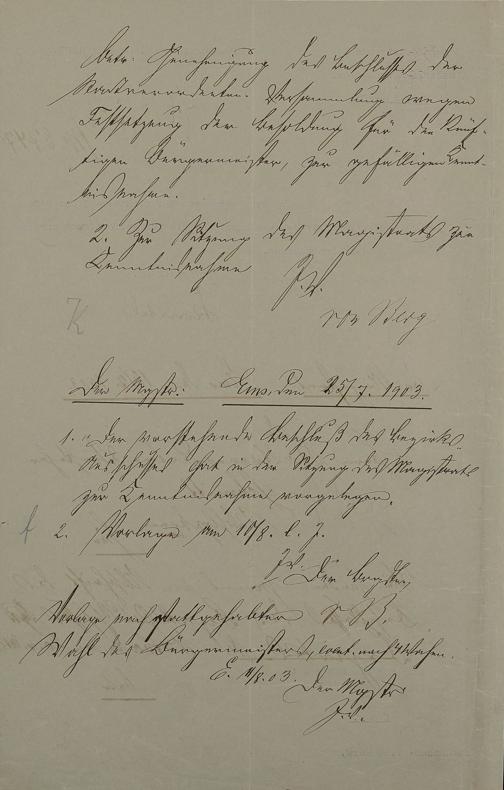 betr. Genehmigung des Beschlusses der
Stadtverordneten-Versammlung wegen
Festsetzung der Besoldung für den künf-
tigen Bürgermeister, zur gefälligen Kennt-
nisnahme.
2. Zur Sitzung des Magistrats zur
Kenntnisnahme
J.V.
von Berg
Der Mgstr: Ems, den 25/7. 1903.
1. Der vorstehende Beschluß des Bezirks
Ausschusses hat in der Sitzung des Magistrats
zur Kenntnisnahme vorgelegen.
2. Vorlage am 10/8. l. J.
J.V. Der
Vorlage nach stattgehabter
Wahl des Bürgermeisters, event. nach 4 Wochen.
E. 11/8.03.
Der Mgstr
J.V.